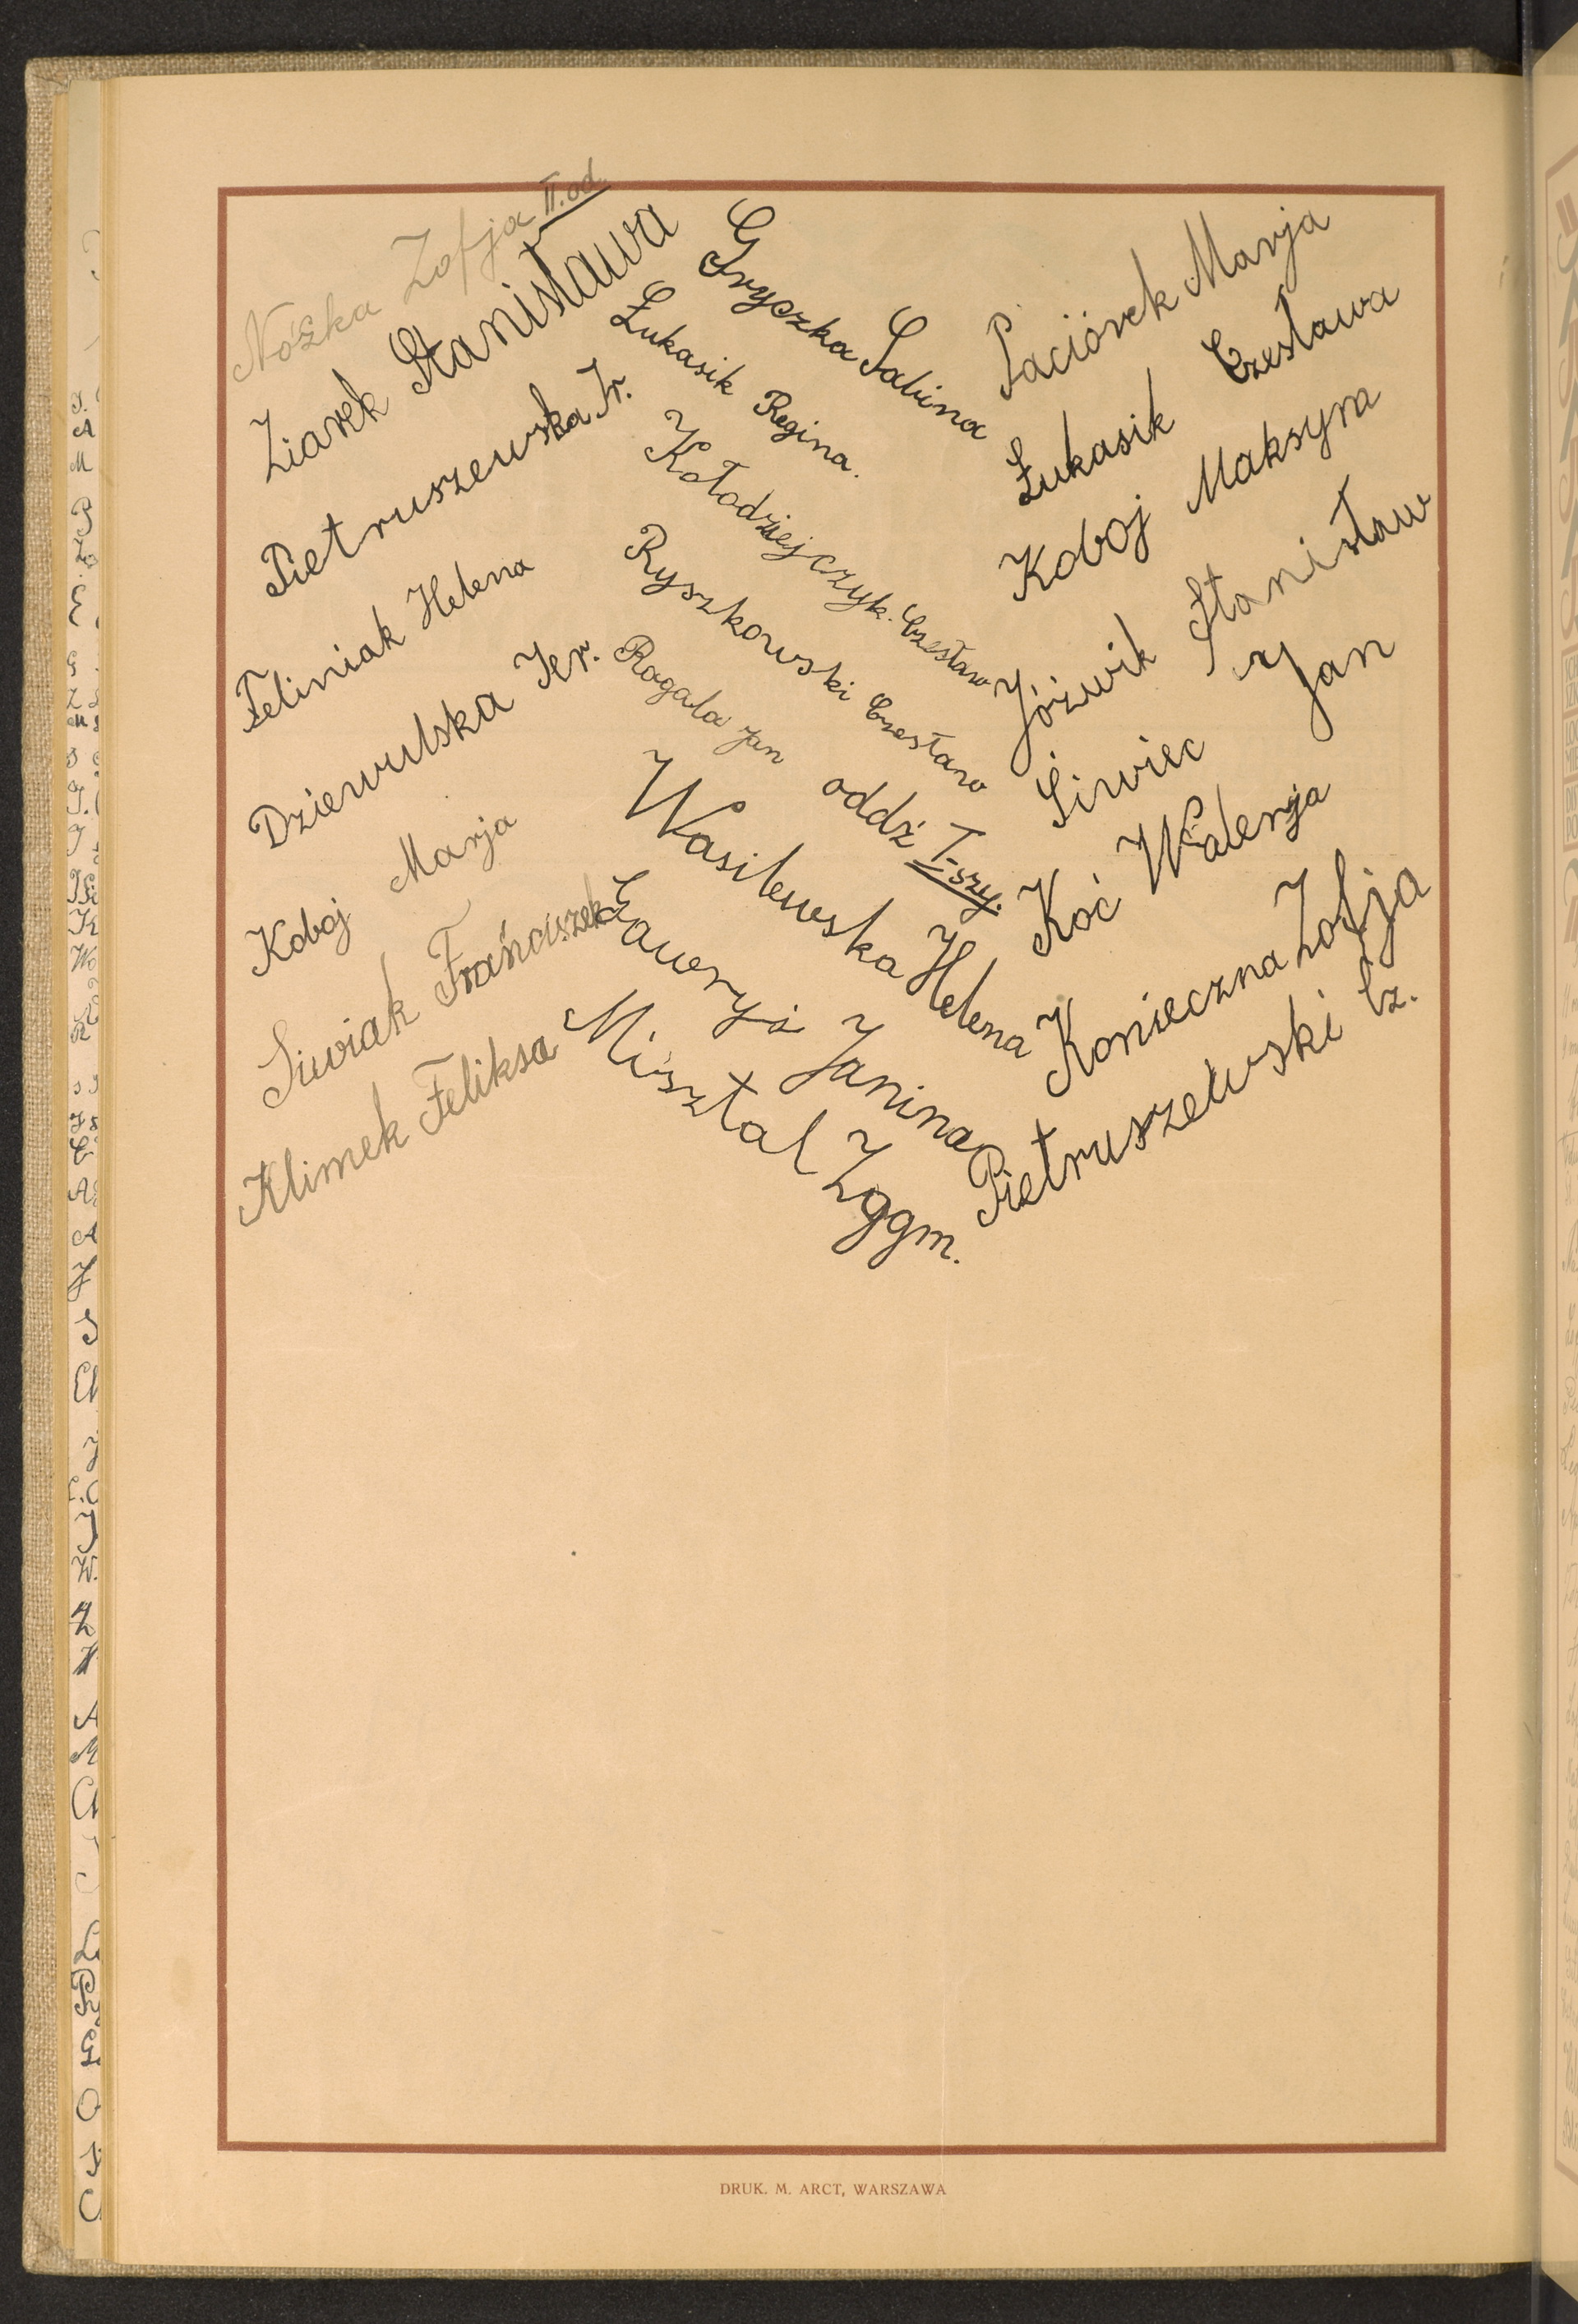 Nóżka Zofja II. od.
Ziarek Stanisława
Pietruszewska Ir.
Feliniak Helena
Dziewulska Ier.
Koboj Marja
Siwiak Franciszek
Klimek Feliksa
Gryczka Sabina
Łukasik Regina.
Kołodziejczyk. Czesław
Ryszkowski Czesław
Rogala Jan oddż I-szy.
Wasilewska Helena
Gawryś Janina
Misztal Zygm.
Paciórek Marja
Łukasik Czesława
Koboj Maksym
Jóźwik Stanisław
Siwiec Jan
Koć Walerja
Konieczna Zofja
Pietruszewski Cz.
DRUK. M. ARCT, WARSZAWA